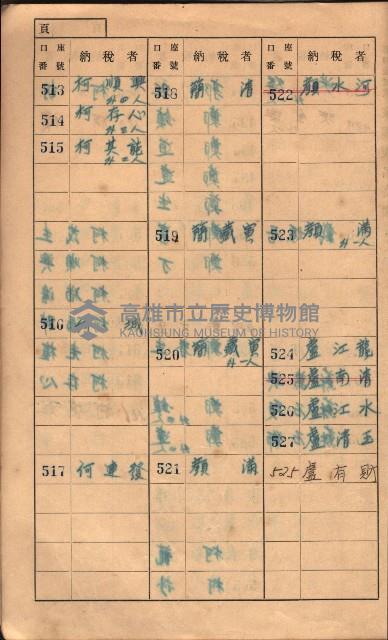 頁
口座番號 納稅者
513 柯順興 外四人
514 柯存心 外三人
515 柯其能 外二人
516
517 何連發
口座番號 納稅者
518 簡清
519 簡戴寅
520 簡戴寅 外一人
521 顏滿
口座番號 納稅者
522 顏水河
523 顏滿 外一人
524 盧江龍
525 盧南清
526 盧江水
527 盧清玉
525 盧有財
高雄市立歷史博物館
KAOHSIUNG MUSEUM OF HISTORY